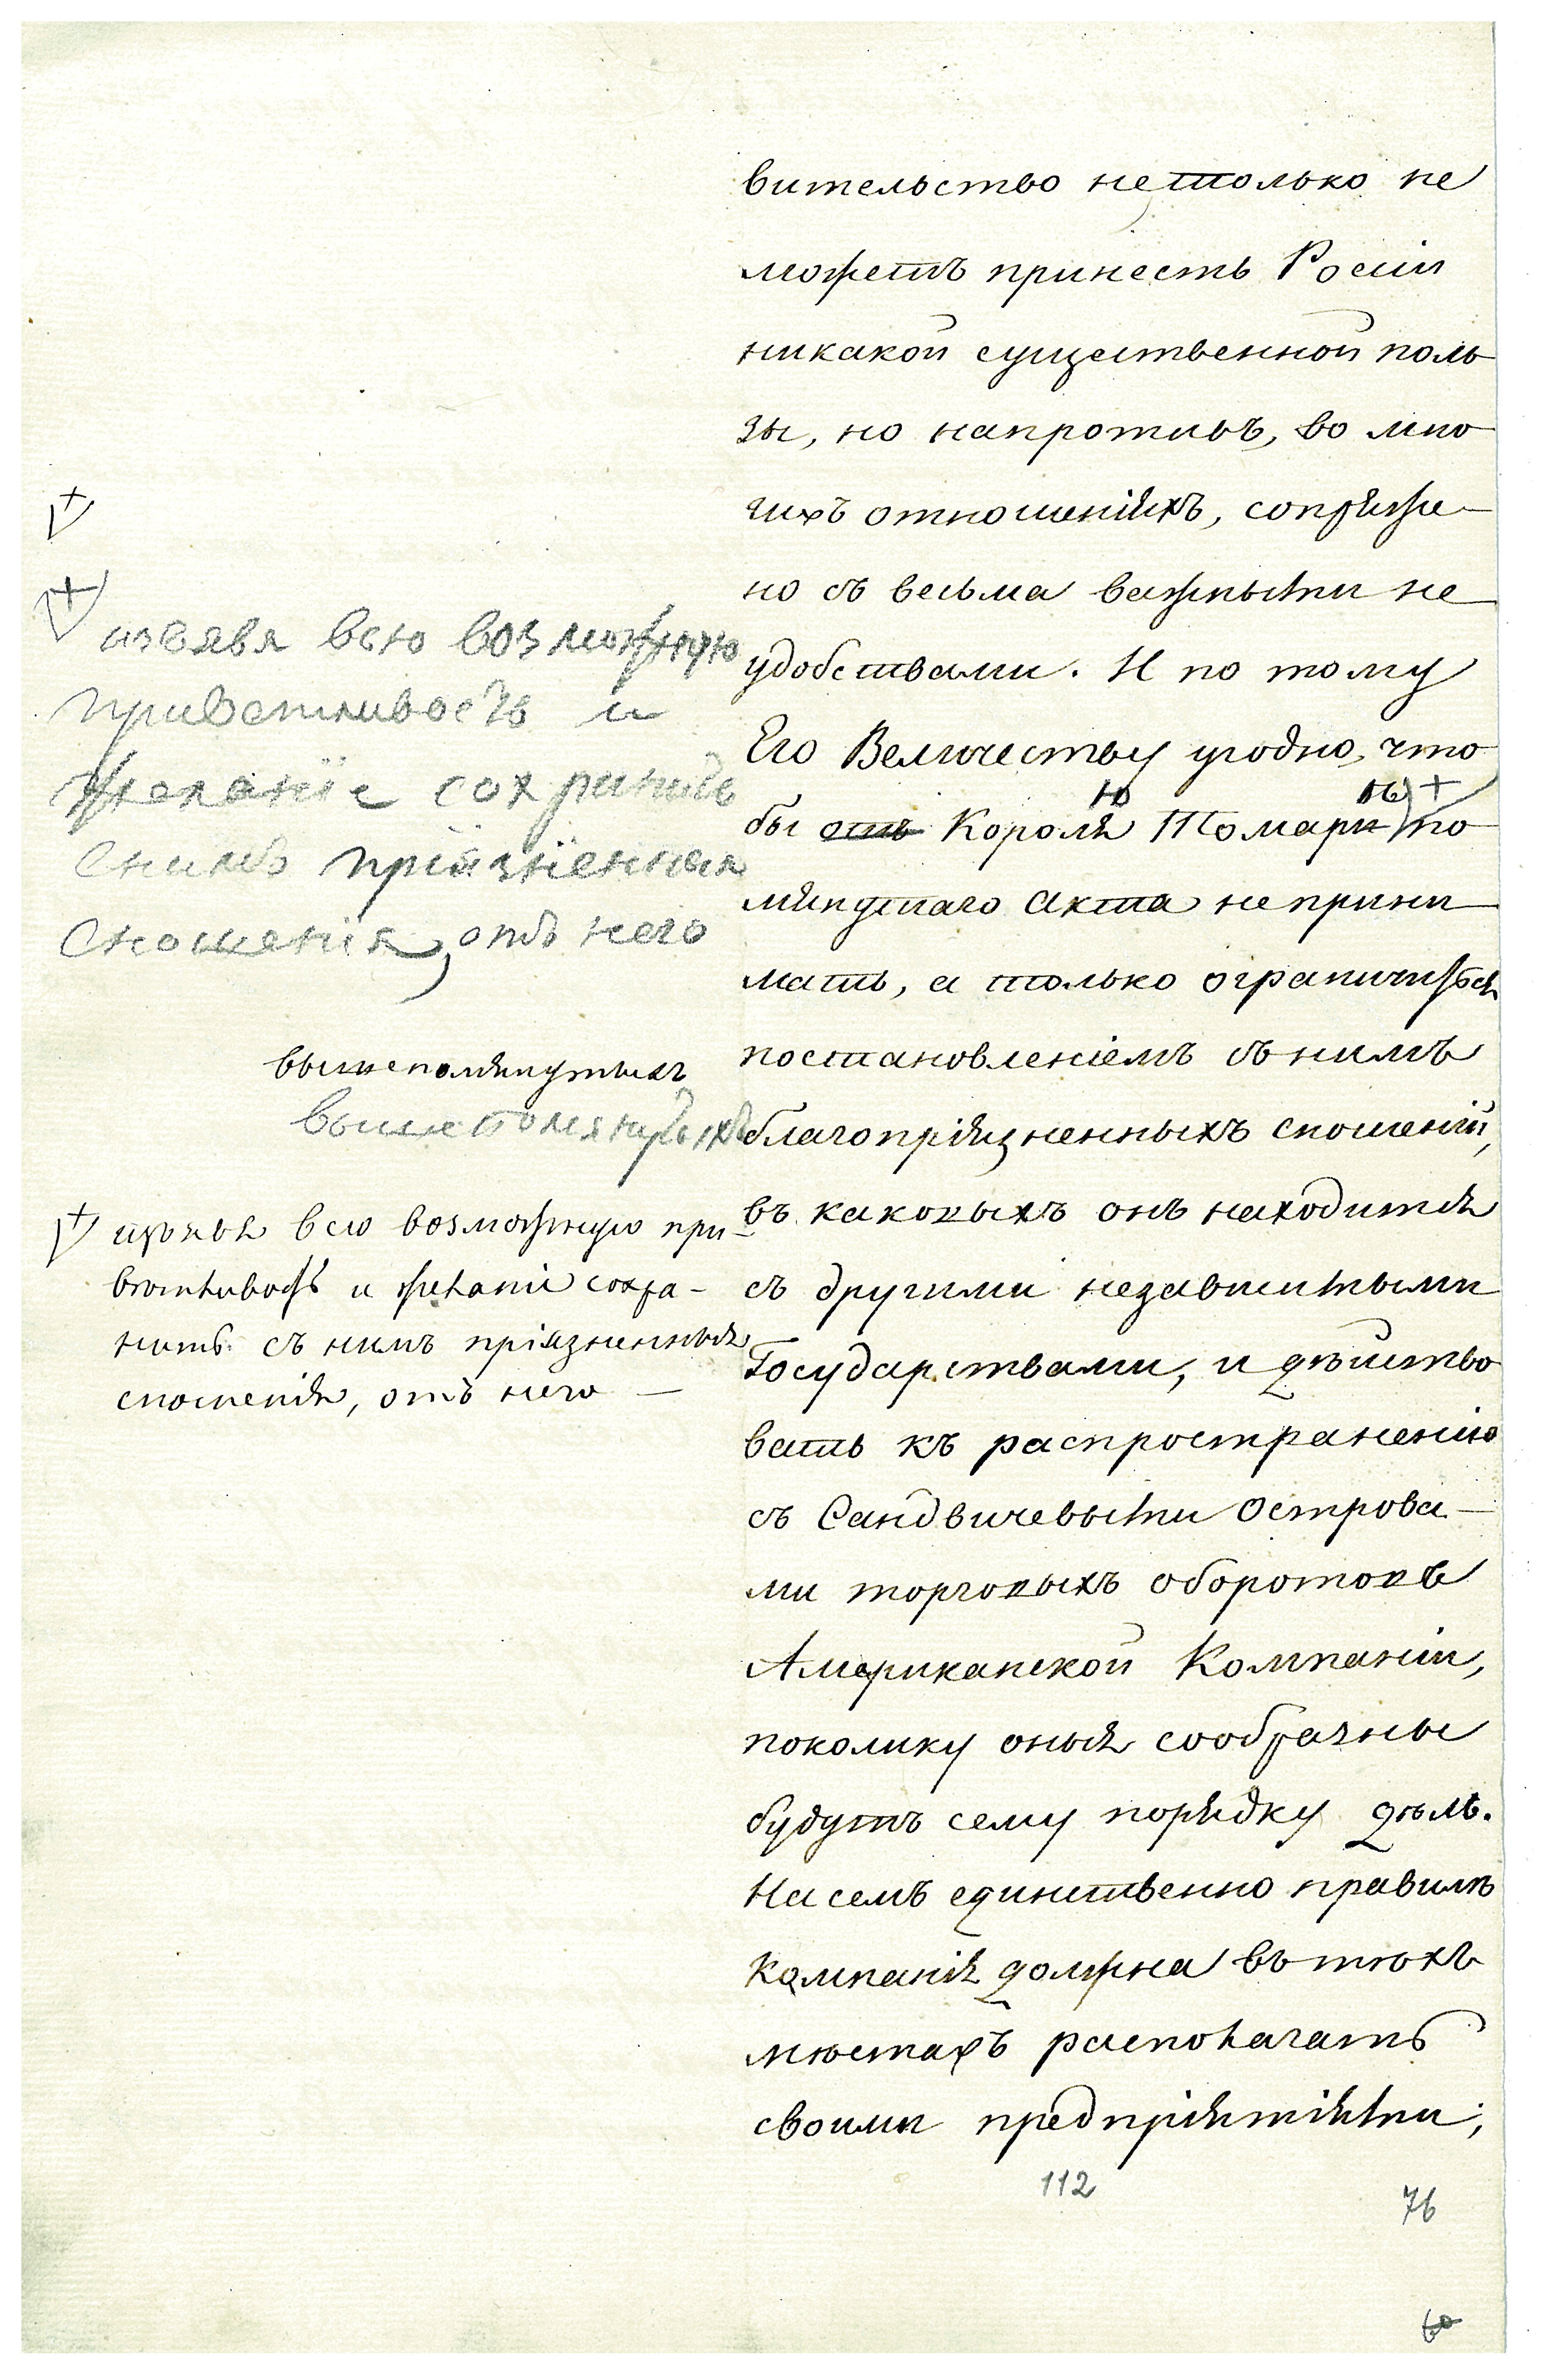 вительство не только не
можетъ принесть Росіи
никакой существенной поль
зы, но напротивъ, во мно
гихъ отношеніяхъ, сопряже-
но съ весьма важными не
удобствами. И по тому
Его Величеству угодно, что
ю ѣ) +
бы отъ Короля Томари по
мянутаго Акта не прини
мать, а только ограничиться
постановленіемъ съ нимъ
благопріязненныхъ сношеній,
въ каковыхъ онъ находится
съ другими независимыми
Государствами, и дѣйство
вать къ распространенію
съ Сандвичевыми Острова-
ми торговыхъ оборотовъ
Американской Компаніи,
поколику оныя сообразны
будутъ сему порядку дѣлъ.
На семъ единственно правилѣ
Компанія должна въ тѣхъ
мѣстахъ располагать
своими предпріятіями;
+
+
изъявя всю возможную
приветливость и
желаніе сохранить
снимъ пріязненныя
сношенія, отъ него
вышепомянутыхъ
вышепомянутыхъ
+ изъявя всю возможную при-
вѣтливость и желаніе сохра-
нить съ нимъ пріязненныя
сношенія, отъ него —
112
76